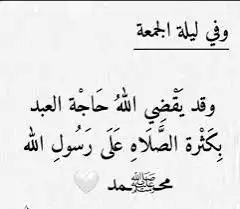 وفي ليلة الجمعة
وقد يَقْضِي اللهُ حَاجْة العبد
بِكَثْرة الصَّلَاهِ عَلَى رَسُولِ الله
محمد ﷺ 🤍